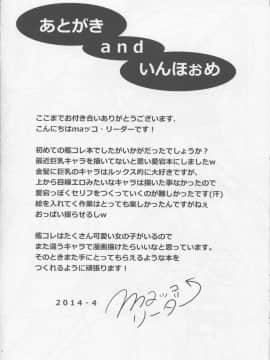 あとがき
and
いんほぉめ
ここまでお付き合いありがとうございます。
こんにちはmaッコ・リーダーです！
初めての艦コレ本でしたがいかがだったでしょうか？
最近巨乳キャラを描いてないと思い愛宕本にしましたw
金髪に巨乳のキャラはルックス的に大好きですが、
上から目線エロみたいなキャラは描いた事なかったので
愛宕っぽくセリフをつくっていくのが難しかったです(汗)
絵を入れてく作業はとっても楽しかったんですがねえ
おっぱい揺らせるしw
艦コレはたくさん可愛い女の子がいるので
また違うキャラで漫画描けたらいいなと思っています。
そのときまた手にとってもらえるような本を
つくれるように頑張ります！
2014・4
maッコ
リーダー